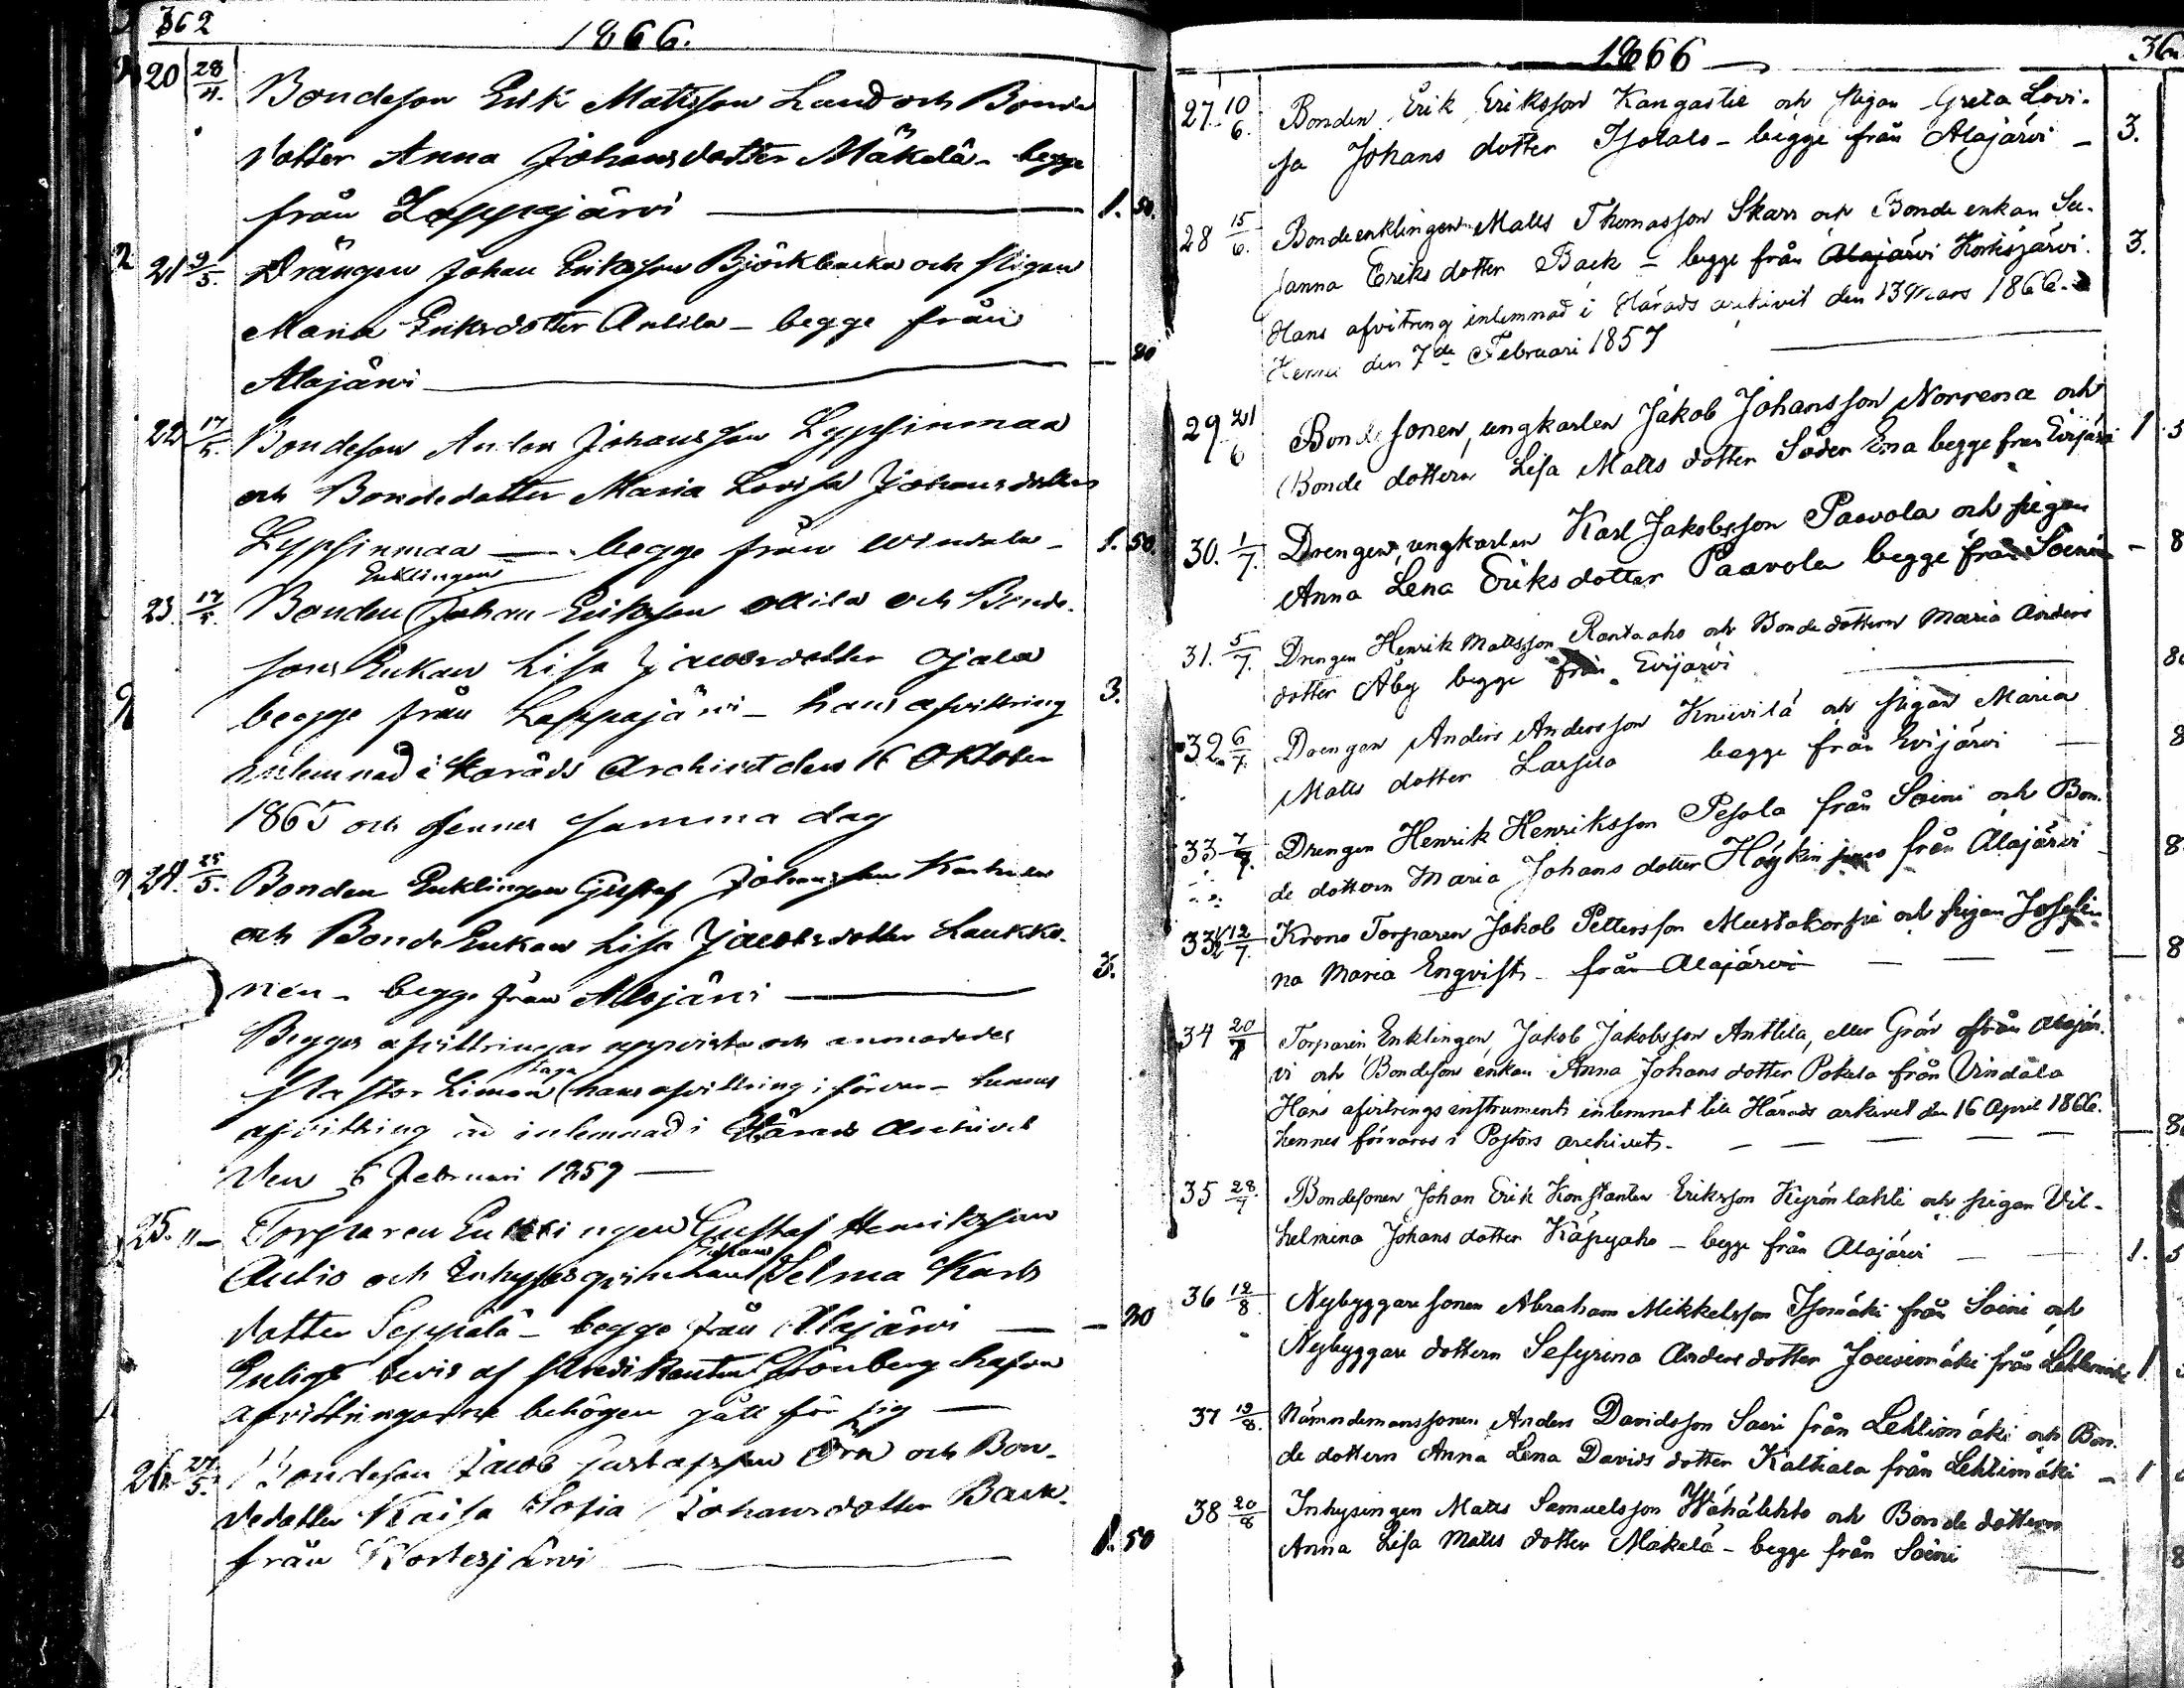 362
1866.
20 28/4. Bondeson Erik Mattsson Lund och Bonde
dotter Anna Johansdotter Mäkelä - begge
från Lappajärvi — 1. 50.
21 9/5. Drängen Johan Eriksson Björkbacka och pigan
Maria Eriksdotter Antila - begge från
Alajärvi — 80
22 17/5. Bondeson Johansson Lypsinmaa
och Bondedotter Maria Lovisa Johansdotter
Lypsinmaa — begge från Windala - 1. 50.
Enklingen
23. 17/5. Bonden Johan Eriksson och Bonde-
sons Enkan Lisa Jacobsdotter Ojala
begge från Lappajärvi - hans afvittring 3.
inlemnad i Härads Archivet den 16 Oktober
1865 och hennes samma dag
24. 25/5. Bonden Enklingen Gustaf Johansson
och Bonde Enkan Lisa Jacobsdotter Laukko-
nen - begge från Alajärvi — 3.
Begges afvittringar uppvista och
hans afvittring i förvar - hennes
afvittring är inlemnad i Härads Archivet
den 6 Februari 1859 —
25. "- Torparen Enklingen Gustaf Henriksson
Autio och Enkan Selma Karls
dotter Seppälä - begge från Alajärvi — - 20
Enligt bevis af Predikanten Grönberg
afvittringarne behögen gält för sig —
26. 27/5. Bondeson Jacob Gustafsson Öra och Bon-
dedotter Kaisa Sofia Johansdotter Back-
från Kortesjärvi — 1. 50
1866
27. 10/6. Bonden Erik Eriksson Kangastie och pigan Greta Lovi-
sa Johans dotter Isotalo - begge från Alajärvi - 3.
28 15/6. Bondeenklingen Matts Thomasson Skarr och Bonde enkan Su-
sanna Eriks dotter Back - begge från Alajärvi Kortisjärvi. 3.
Hans afvitring inlemnad i Härads arkivit den 13 Mars 1866.
Hennes den 7de Februari 1857 —
29 21/6 Bondesonen, ungkarlen Jakob Johansson Norrena och
Bonde dottern Lisa Matts dotter Söder Ena begge från Evijärvi 1. 5
30. 1/7. Drengen, ungkarlen Karl Jakobsson Paavola och pigan
Anna Lena Eriks dotter Paavola begge från Soini - 8
31. 5/7. Drengen Henrik Mattsson Rantaaho och Bonde dottern Maria Anders
dotter Åby begge från Evijärvi — 80
32. 6/7. Drengen Anders Andersson Kniivilä och pigan Maria
Matts dotter Larsila begge från Evijärvi — 8
33 7/7. Drengen Henrik Henriksson Pesola från Soini och Bon-
de dottern Maria Johans dotter från Alajärvi - 8
33½ 12/7. Krono Torparen Jakob Pettersson Mustakorpi och pigan Josefi-
na Maria Enqvist - från Alajärvi — 8
34 20/7 Torparen Enklingen, Jakob Jakobsson Anttila, eller Grön från Alajär-
vi och Bondeson enkan Anna Johans dotter Pokela från Vindala
Hans afvitrings instrument inlemnat till Härads arkivet den 16 April 1866.
hennes förvaras i Pastors archivet. — 8
35 28/7. Bondesonen Johan Erik Konstantin Eriksson Kyrönlahti och pigan Vil-
helmina Johans dotter Käpyaho - begge från Alajärvi — 1. 5
36 12/8. Nybyggare sonen Abraham Mikkelsson Isomäki från Soini och
Nybyggare dottern Sefyrina Anders dotter Jousimäki från Lehtimäki 1
37 19/8. Nämndemanssonen Anders Davidsson Saari från Lehtimäki och Bon-
de dottern Anna Lena Davids dotter Kaltiala från Lehtimäki - 1
38 20/8 Inhysingen Matts Samuelsson Wähälehto och Bonde dottern
Anna Lisa Matts dotter Mäkelä - begge från Soini — 8